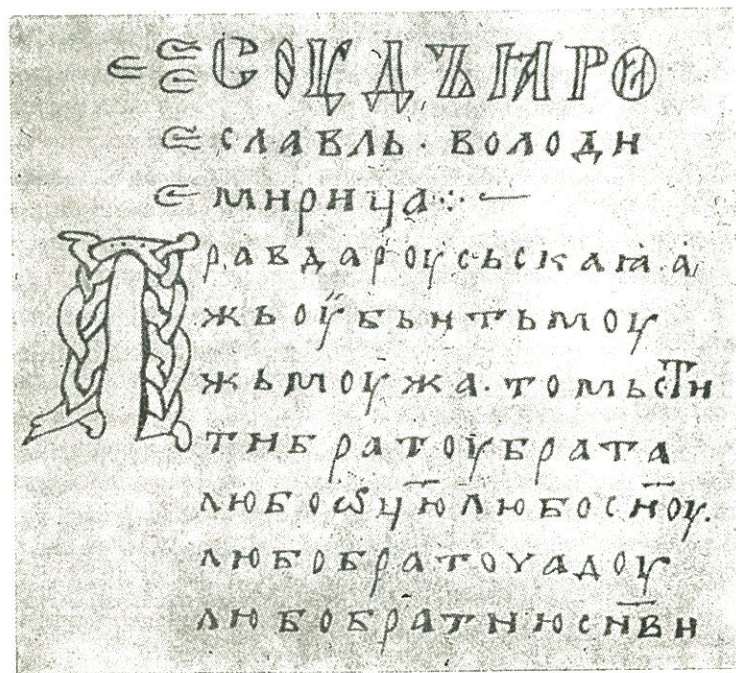 СОУДЪ ꙖРО
славль · володи
мирица ⁘ —
Правдароусьскаꙗ · а
жьоубьить моу
жьмоужа · томьсти
тибратоубрата
любоѡц҃юлюбосн҃оу ·
любобраточадоу
любобратнюсн҃ви